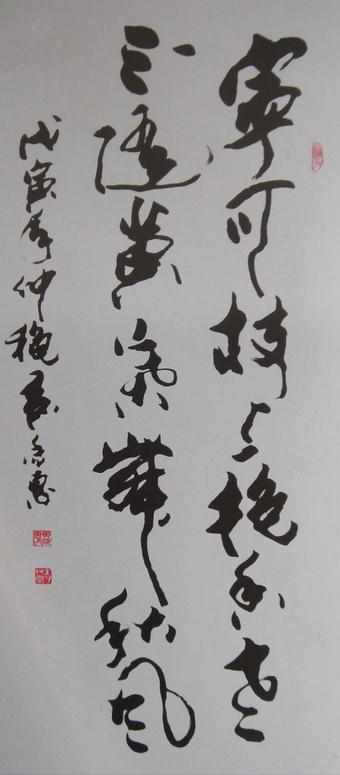 寧可枝上抱香老
不隨黃葉舞秋風
戊寅年仲秋